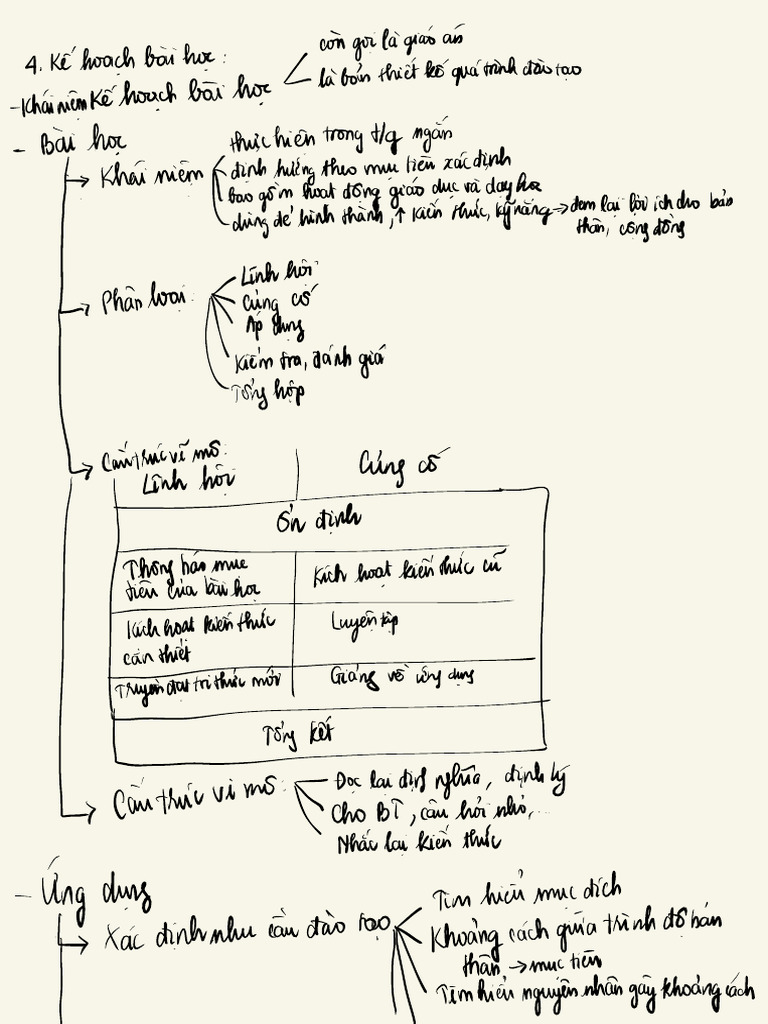 4. Kế hoạch bài học:
còn gọi là giáo án
- Khái niệm Kế hoạch bài học
là bản thiết kế quá trình đào tạo
- Bài học
→ Khái niệm
thực hiện trong t/g ngắn
định hướng theo mục tiêu xác định
bao gồm hoạt động giáo dục và dạy học
dùng để hình thành, ↑ kiến thức, kỹ năng → đem lại lợi ích cho bản
thân, cộng đồng
→ Phân loại
Lĩnh hội
Củng cố
Áp dụng
Kiểm tra, đánh giá
Tổng hợp
→ Cấu trúc vĩ mô:
Lĩnh hội | Củng cố
Ổn định
Thông báo mục
tiêu của bài học
Kích hoạt kiến thức cũ
Kích hoạt kiến thức
cần thiết
Luyện tập
Truyền đạt tri thức mới
Giảng về ứng dụng
Tổng kết
→ Cấu trúc vi mô:
Đọc lại định nghĩa, định lý
Cho BT, câu hỏi nhỏ,...
Nhắc lại kiến thức
- Ứng dụng
→ Xác định nhu cầu đào tạo
Tìm hiểu mục đích
Khoảng cách giữa trình độ bản
thân → mục tiêu
Tìm hiểu nguyên nhân gây khoảng cách